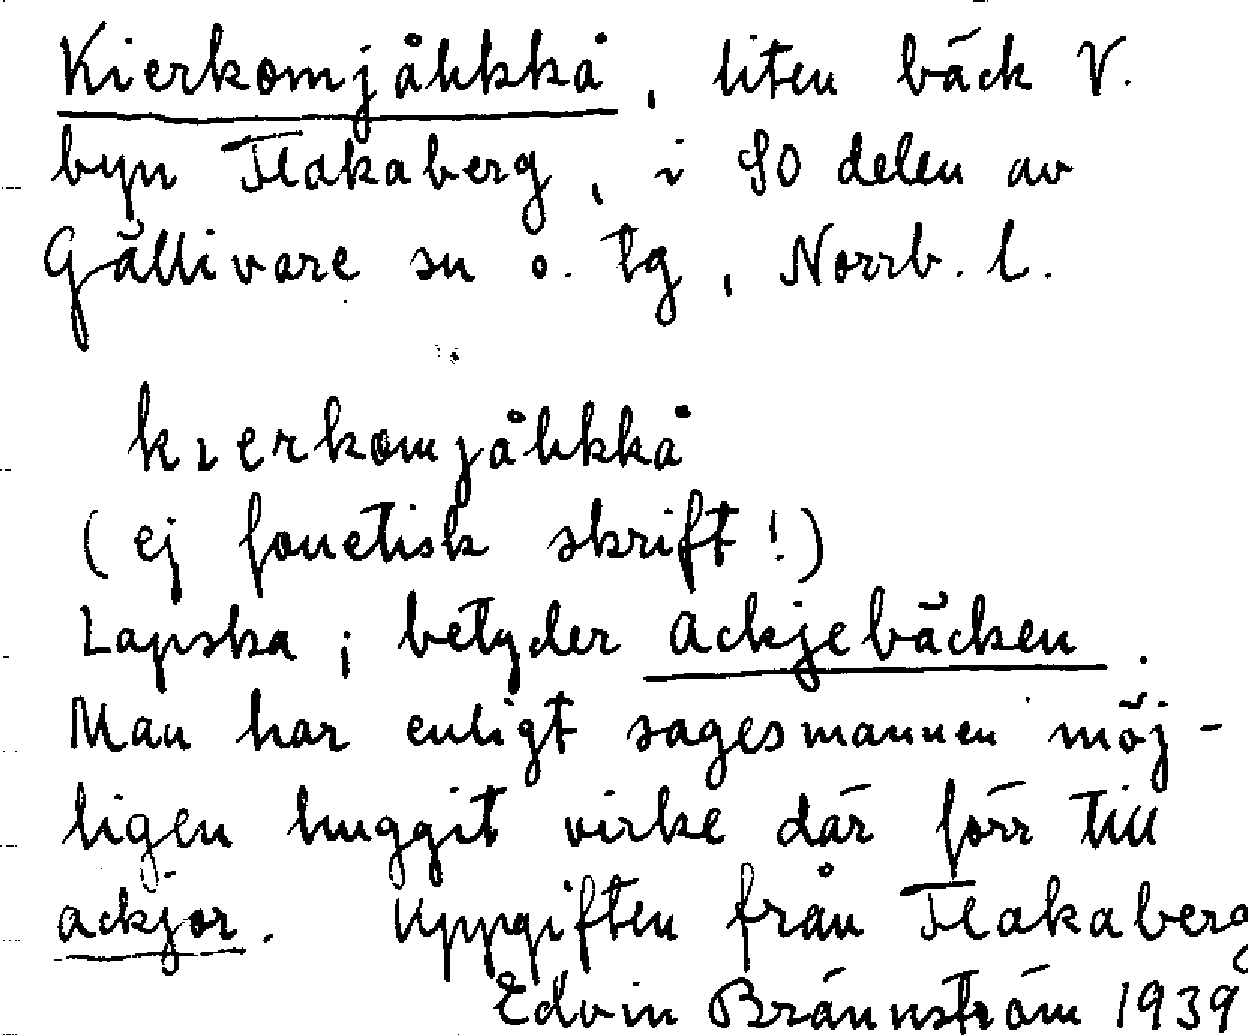 Kierkomjåhkkå, liten bäck V.
byn Flakaberg, i SO delen av
Gällivare sn o. tg, Norrb. l.
kıerkomjåhkkå
(ej fonetisk skrift!)
Lapska; betyder ackjebäcken.
Man har enligt sagesmannen möj-
ligen huggit virke där förr till
ackjor. Uppgiften från Flakaberg
Edvin Brännström 1939